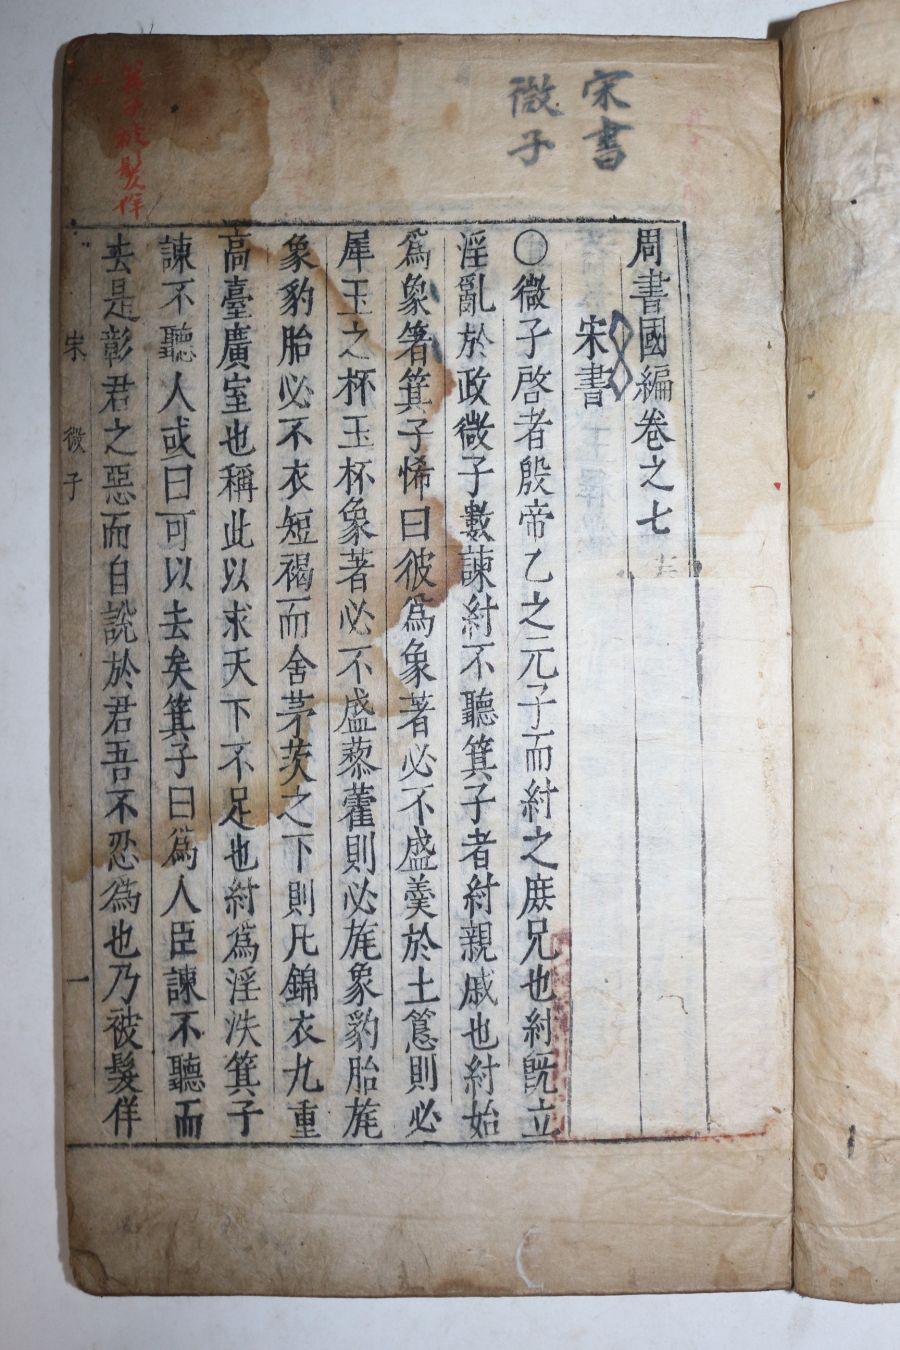 宋書
微子
周書國編卷之七
宋書
〇微子啓者殷帝乙之元子而紂之庶兄也紂旣立
淫亂於政微子數諫紂不聽箕子者紂親戚也紂始
爲象箸箕子悕曰彼爲象著必不盛羹於土簋則必
犀玉之杯玉杯象著必不盛藜藿則必旄象豹胎旄
象豹胎必不衣短褐而舍茅茨之下則凡錦衣九重
高臺廣室也稱此以求天下不足也紂爲淫泆箕子
諫不聽人或曰可以去矣箕子曰爲人臣諫不聽而
去是彰君之惡而自說於君吾不忍為也乃被髮佯
宋 微子 一
箕子被髮佯